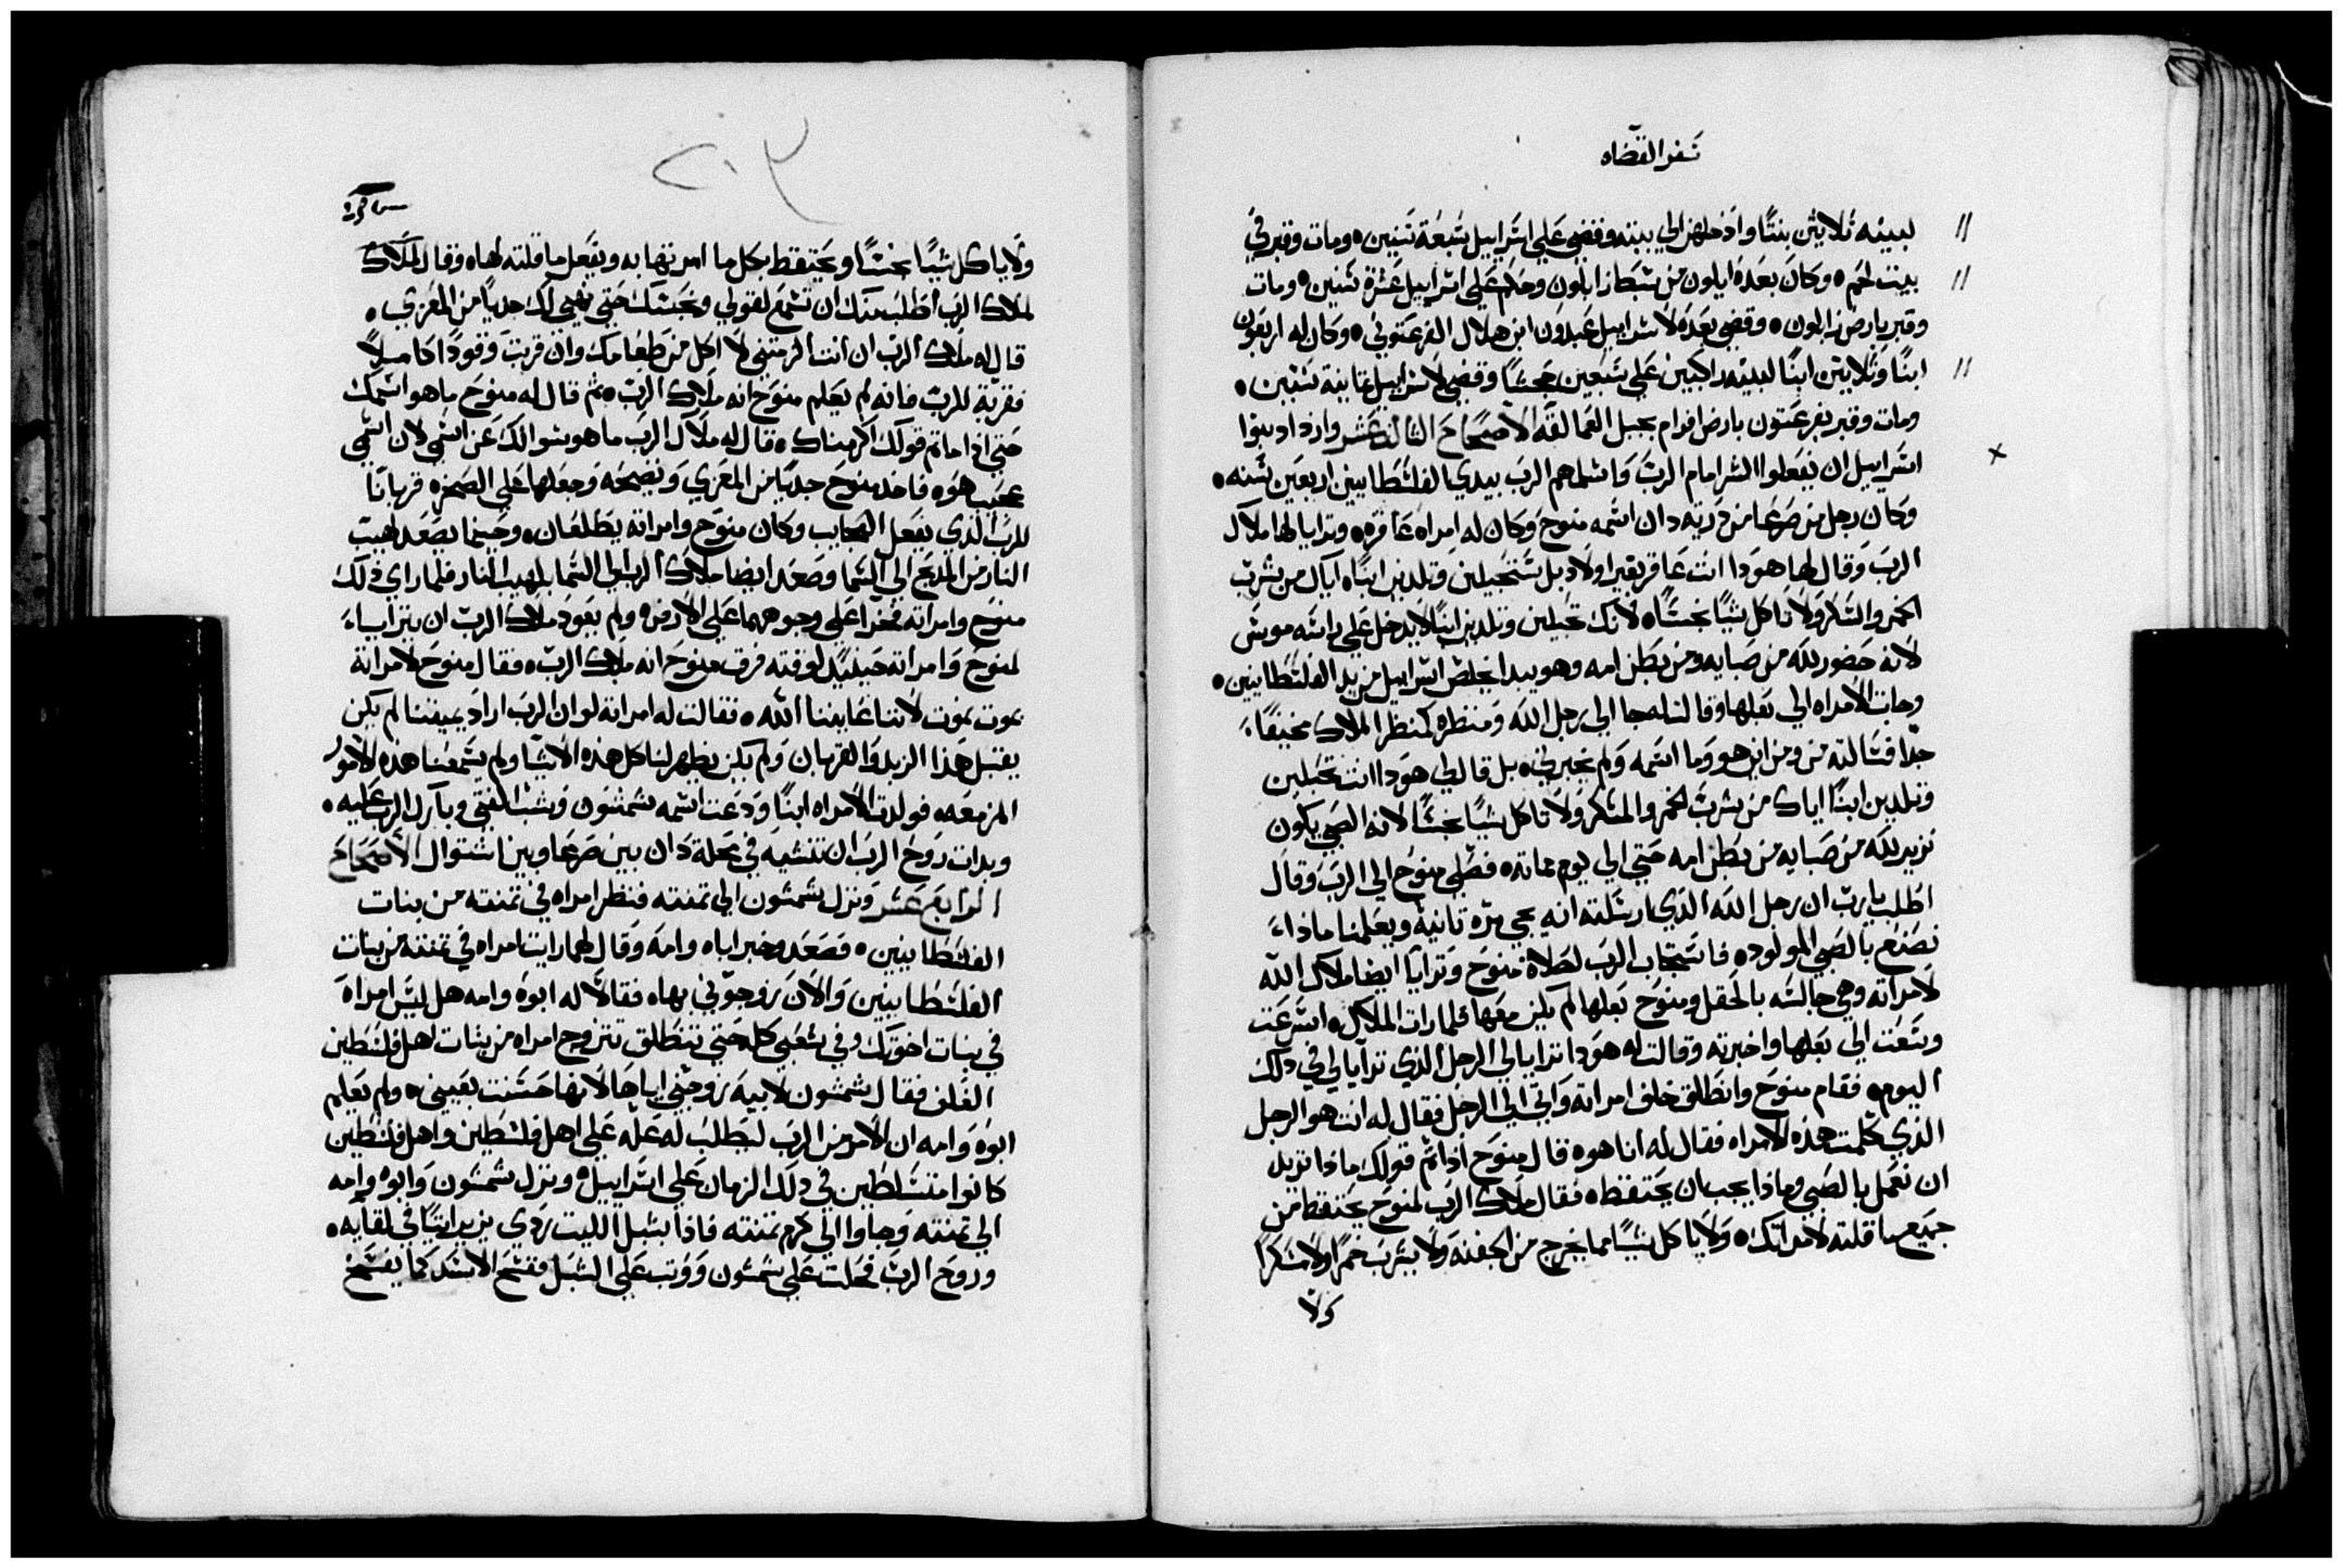 سفر القضاه
لبنيه ثلاثين بنتًا وادخلهن الي بيته وقضي علي اسراييل سبعة سنين ومات وقبر في
بيت لحم وكان بعده ايلون من سبط زابلون وحكم علي اسراييل عشرة سنين ومات
وقبر بارض زابلون وقضي بعده لاسراييل عبدون ابن هلال الفرعتوني وكان له اربعون
ابنًا وثلاثين ابنًا لبنيه راكبين علي سبعين جحشًا وقضي لاسراييل ثمانية سنين
ومات وقبر بفرعتون بارض افرام بجبل العمالقه الاصحاح الثالث عشر وازدادبنوا
اسراييل ان يفعلوا الشر امام الرب واسلمهم الرب بيدي الفلسطانيين اربعين سنه
وكان رجل من صرعا من ذريته دان اسمه منوح وكان له امراه عاقره وترايا لها ملاك
الرب وقال لها هودا انت عاقر بغير اولاد بل ستحبلين وتلدين ابنًا اياك من شرب
الخمر والسكر ولا تاكل شيًا نجسًا لانك تحبلين وتلدين ابنًا لا يدخل علي راسه موسَي
لانه حضور لله من صبايه ومن بطن امه وهو يبدا يخلص اسراييل من يد الفلسطانيين
وجات الامراه الي بعلها وقالت له جا الي رجل الله ومنظره كمنظر الملاك مخيفًا
جدًا فسالته من ومن اين هو وما اسمه ولم يخبرني بل قال لي هودا انت تحبلين
وتلدين ابنًا اياك من شرب الخمر والمسكر ولا تاكل شيًا نجسًا لانه الصبي يكون
نزير لله من صبايه من بطن امه حتي الي يوم مماته فصلي منوح الي الرب وقال
اطلب يا رب ان رجل الله الذي ارسلته انه يجي مره تانية ويعلمنا ماذا
نصنع بالصبي المولود فاستجاب الرب لصلاة منوح وترايا ايضا ملاك الله
لامراته وهي جالسه بالحقل ومنوح بعلها لم يكن معها فلما رات الملاك اسرعت
وسعت الي بعلها واخبرته وقالت له هودا ترايا لي الرجل الذي ترايا لي في ذلك
اليوم فقام منوح وانطلق خلف امراته واتي الي الرجل فقال له انت هو الرجل
الذي كلمت هذه الامراه فقال له انا هوه قال منوح اذا تم قولك ماذا تريد
ان نعمل بالصبي وماذا يجب ان يحتفظ فقال ملاك الرب لمنوح يحتفظ من
جميع ما قلته لامراتك ولا ياكل شيًا مما يخرج من الجفنه ولا يشرب خمرًا ولا مسكرًا
ولا
٢٠٣
ولا ياكل شيًا نجسًا ويحتفظ بكل ما امرتها به ويفعل ما قلته لها وقال
لملاك الرب اطلب منك ان تسمع لقولي ونحبسك حتي نهيي لك جديًا من المعزي
قال له ملاك الرب ان انت الزمتني لا اكل من طعامك وان قربت وقودًا كاملًا
فقربه للرب فانه لم يعلم منوح انه ملاك الرب ثم قال له منوح ما هو اسمك
حتي اذا ما تم قولك اكرمناك قال له ملاك الرب ما هو سوالك عن اسمي لان اسمي
عجيب هوه فاخد منوح جديًا من المعزي ونضحه وجعلها علي الصخره قربانًا
للرب الذي يفعل العجايب وكان منوح وامراته يطلعان وحينما يصعد لهيب
النار من المدبح الي السما وصعد ايضا ملاك الرب الي السما بلهيب النار فلما راي ذلك
منوح وامراته فخرا علي وجوههما علي الارض ولم يعود ملاك الرب ان يترايا
لمنوح وامراته حينيدٍ لوقته عرف منوح انه ملاك الرب فقال منوح لامراته
بموت نموت لاننا عاينا الله فقالت له امراته لو ان الرب اراد يميتنا لم يكن
يقبل هذا الزبد والقربان ولم يكن يظهر لنا كل هذه الاشيا ولم يسمعنا هذه الامور
المزمعه فولدت الامراه ابنًا ودعت اسمه شمشون وشب الفتي وبارك الرب عليه
وبدات روح الرب ان تنشيه في محلة دان بين صرعا وبين اشتوال الاصحاح
الرابع عشر ونزل شمشون الي تمنته فنظر امراه في تمنته من بنات
الفلسطانيين فصعد وخبر اباه وامه وقال لهما رايت امراه في تمنته من بنات
الفلسطانيين والان زوجوني بها فقالا له ابوه وامه هل ليس امراه
في بنات اخوتك وفي شعبي كله حتي تنطلق تتزوج امراه من بنات اهل فلسطين
الغلف فقال شمشون لابيه زوجني اياها لانها حسنت بعيني ولم يعلم
ابوه وامه ان الامر من الرب ليطلب له علّه علي اهل فلسطين واهل فلسطين
كانوا متسلطين في ذلك الزمان علي اسراييل ونزل شمشون وابوه وامه
الي تمنته وجاوا الي كرم تمنته فاذا بشبل الليت ردي يزير اتيًا في لقايه
وروح الرب فحلت علي شمشون ووتب علي الشبل ففسخ الاسد كما يفسخ